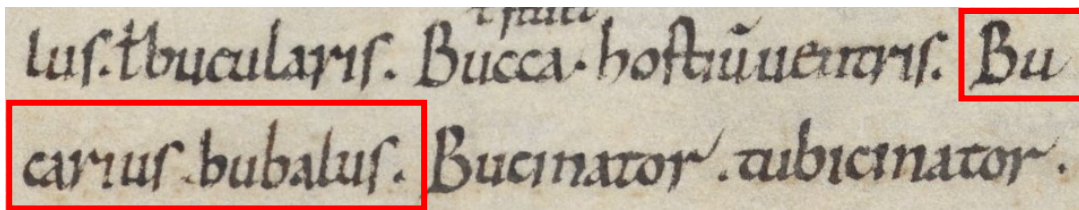 lus. ł bucularis. Bucca. hostiū uentris. Bu
carius. bubalus. Bucinator. tubicinator.